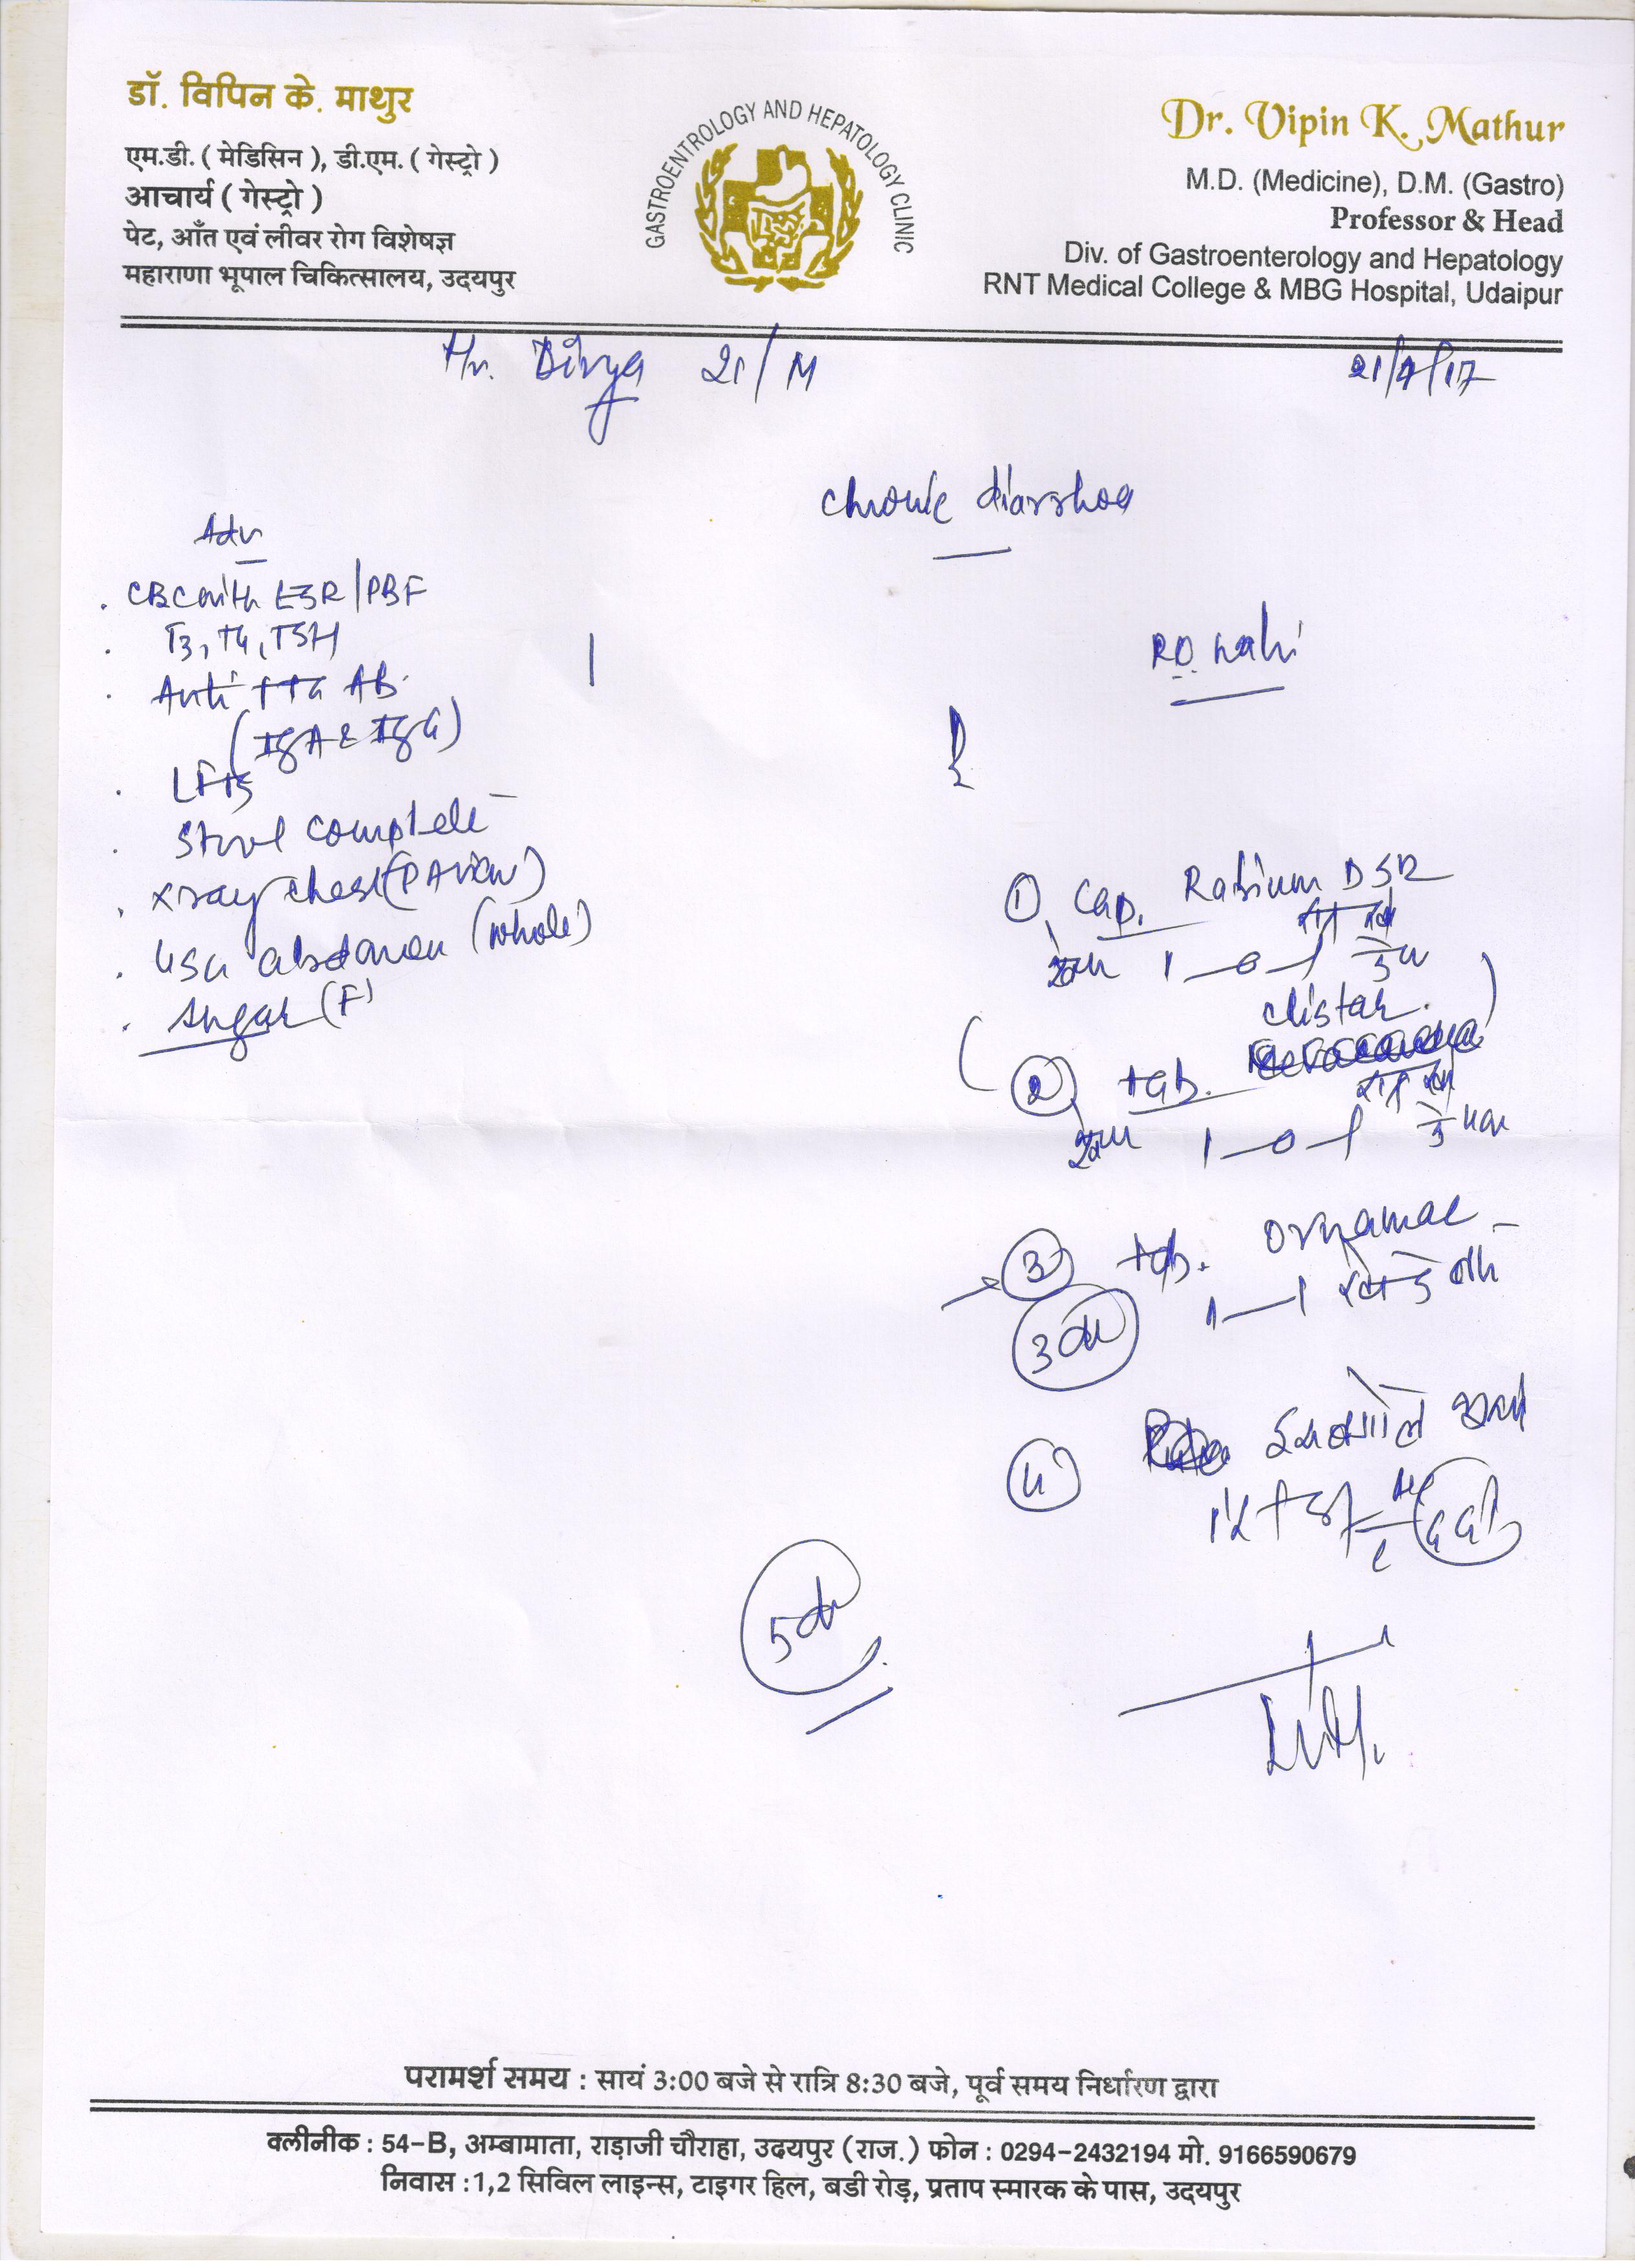 डॉ. विपिन के. माथुर
एम.डी. ( मेडिसिन ), डी.एम. ( गेस्ट्रो )
आचार्य ( गेस्ट्रो )
पेट, आँत एवं लीवर रोग विशेषज्ञ
महाराणा भूपाल चिकित्सालय, उदयपुर
GASTROENTROLOGY AND HEPATOLOGY CLINIC
Dr. Vipin K. Mathur
M.D. (Medicine), D.M. (Gastro)
Professor & Head
Div. of Gastroenterology and Hepatology
RNT Medical College & MBG Hospital, Udaipur
Divya 21/M
21/7/17
chronic diarrhoea
Adv
. CBC with ESR/PBF
. T3, T4, TSH
. Anti tTG AB.
(IgA & IgG)
. LFTs
. Stool complete
. xray chest (PA view)
. USG abdomen (whole)
. sugar (F)
RO
① Cap. Rabium DSR
1-0-1
clistak
② tab.
1-0-1
③ tab. ornamac
1-1
④ इसबगोल
दही
परामर्श समय : सायं 3:00 बजे से रात्रि 8:30 बजे, पूर्व समय निर्धारण द्वारा
क्लीनीक : 54-B, अम्बामाता, राड़ाजी चौराहा, उदयपुर (राज.) फोन : 0294-2432194 मो. 9166590679
निवास :1,2 सिविल लाइन्स, टाइगर हिल, बडी रोड़, प्रताप स्मारक के पास, उदयपुर